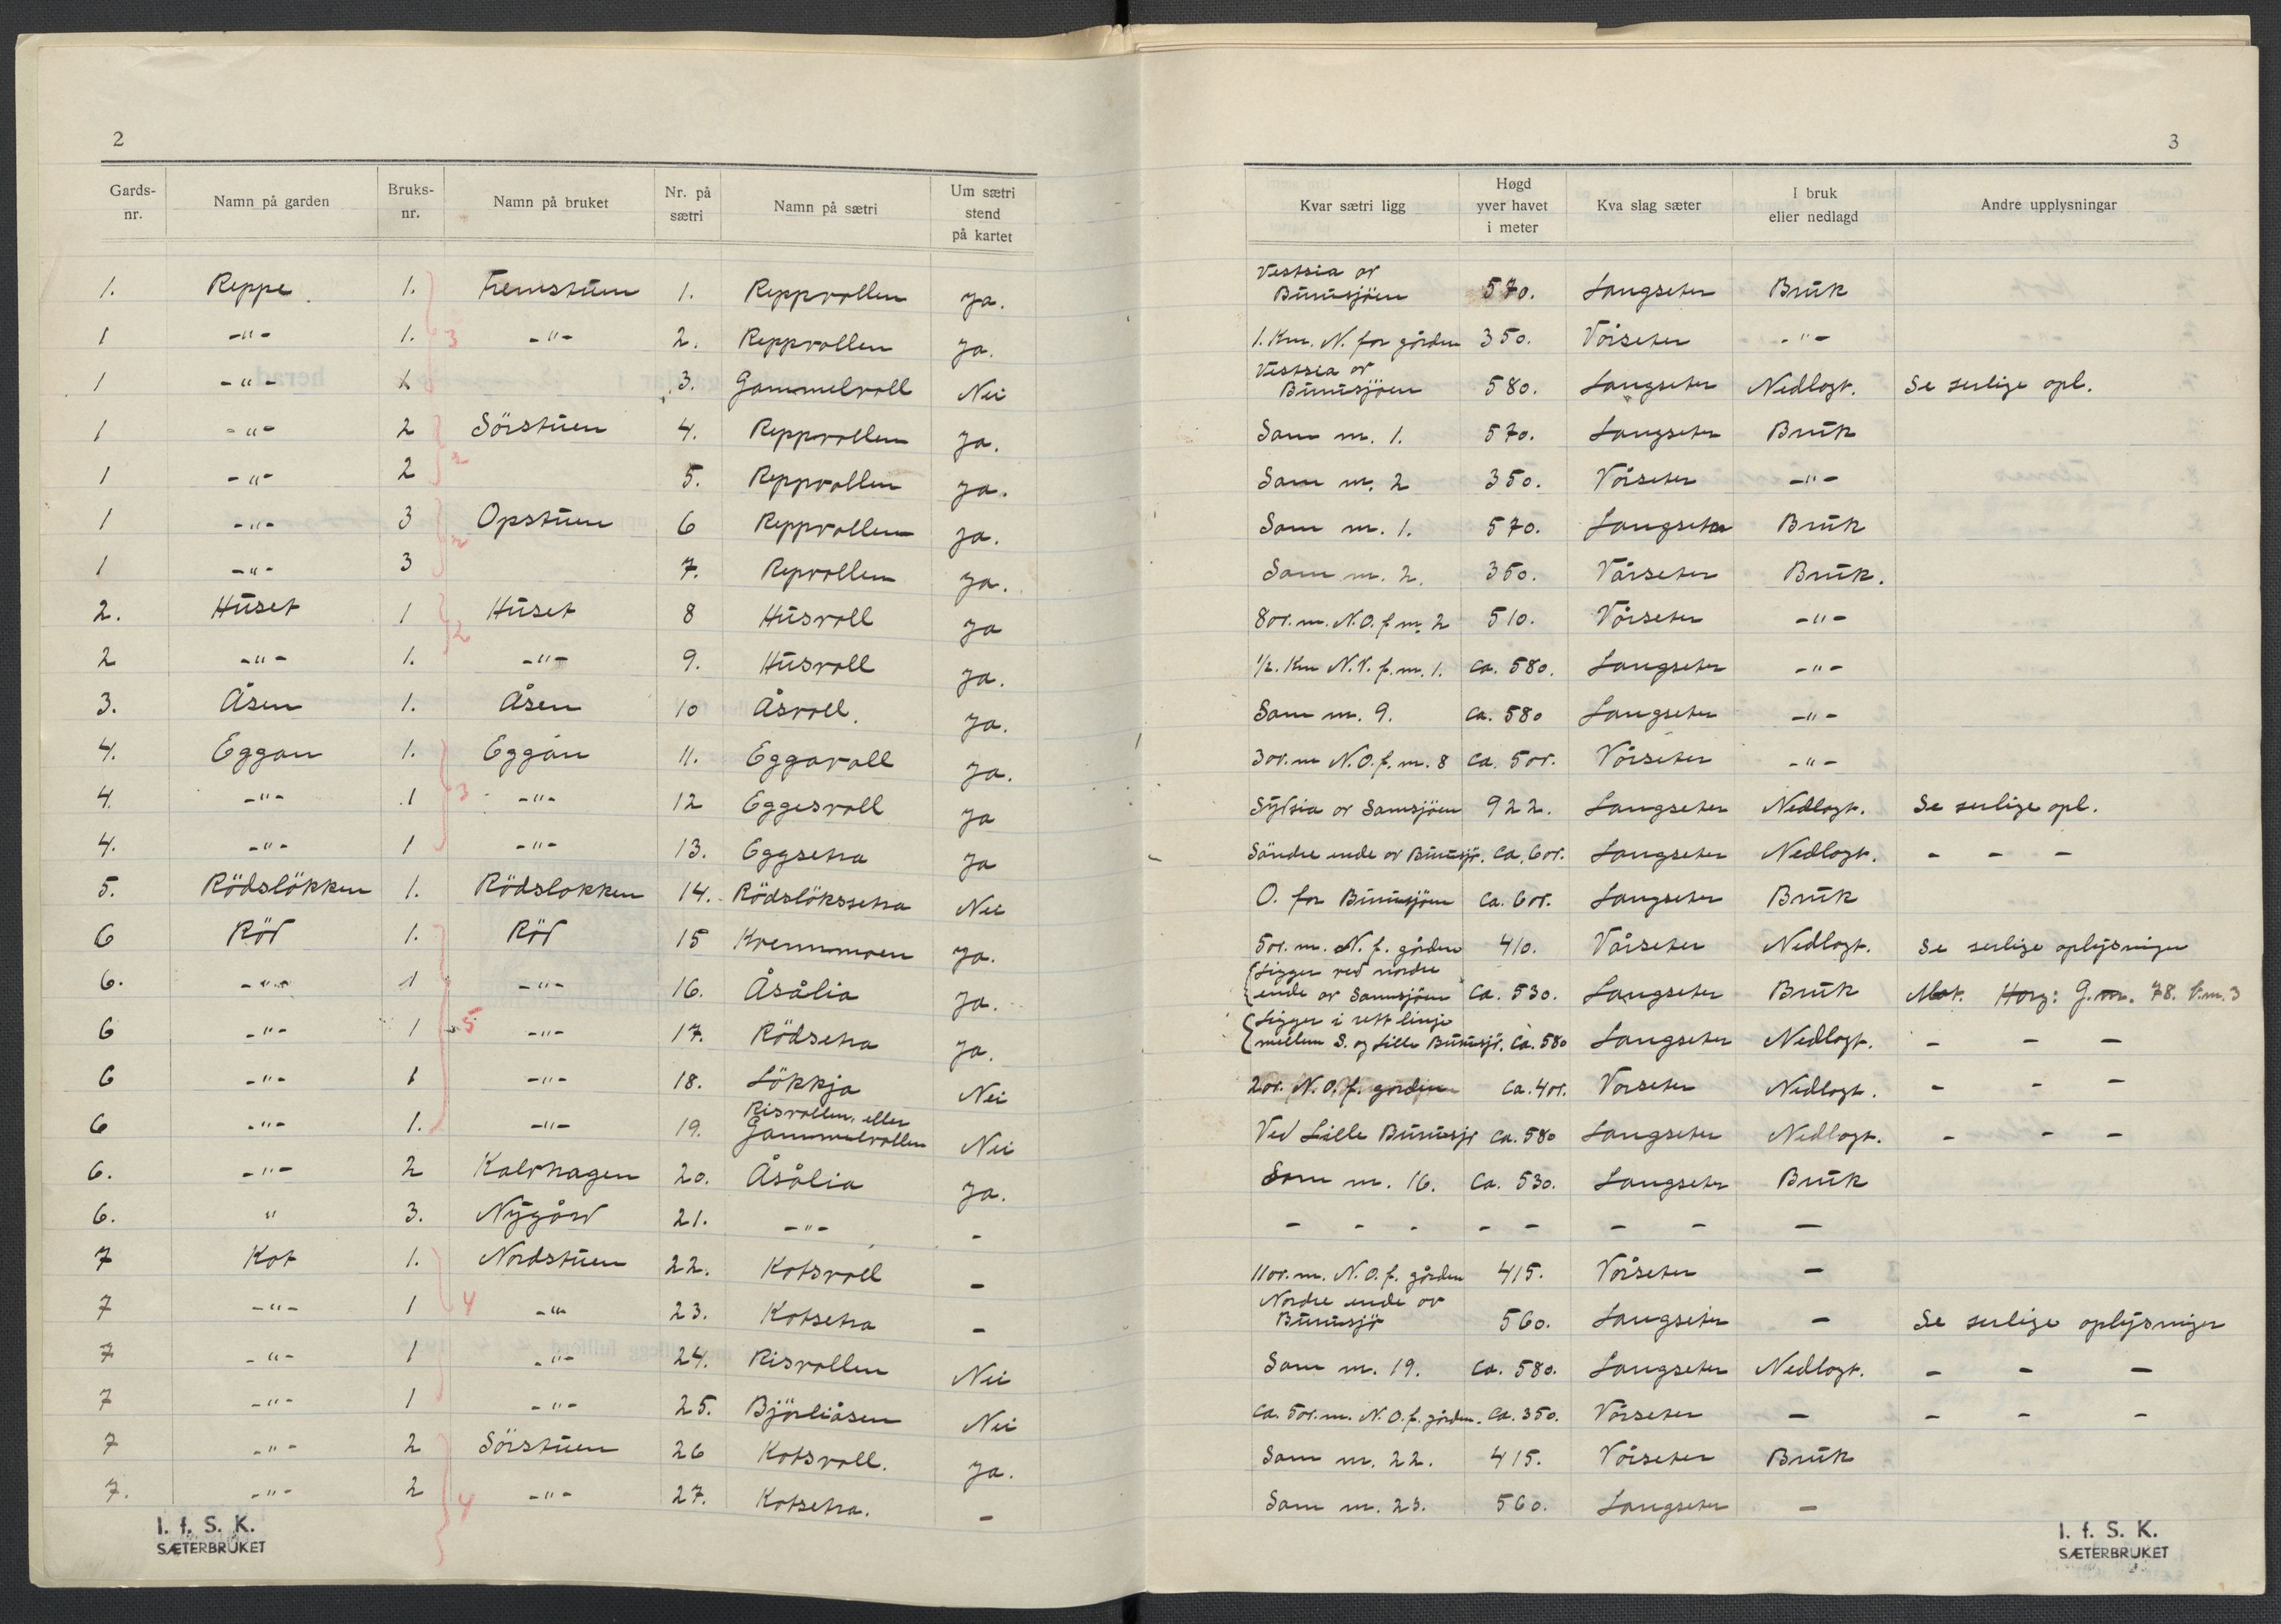 2
Gards-nr. Namn på garden Bruks-nr. Namn på bruket Nr. på sætri Namn på sætri Um sætri stend på kartet
1. Reppe 1. Fremstuen 1. Reppvollen Ja.
1 -"- 1. -"- 2. Reppvollen Ja.
1 -"- 1 3. Gammelvoll Nei
1 -"- 2 Sörstuen 4. Reppvollen Ja.
1 -"- 2 5. Reppvollen Ja.
1 -"- 3 Opstuen 6 Reppvollen Ja.
1 -"- 3 7. Repvollen Ja.
2. Huset 1 Huset 8 Husvoll Ja
2 -"- 1. -"- 9. Husvoll Ja.
3. Åsen 1. Åsen 10 Åsvoll. Ja.
4. Eggan 1. Eggan 11. Eggavoll Ja.
4. -"- 1 -"- 12 Eggesvoll Ja
4. -"- 1 -"- 13. Eggsetra Ja
5. Rödslökken 1. Rödslokken 14. Rödslökssetra Nei
6 Röd 1. Röd 15 Kvernmoen Ja.
6. -"- 1 -"- 16. Åsålia Ja.
6 -"- 1 -"- 17. Rödsetra Ja.
6 -"- 1 -"- 18. Lökkja Nei
6 -"- 1. -"- 19. Risvollen, eller Gammelvollen Nei
6. -"- 2 Kalvhagen 20. Åsålia Ja.
6. " 3. Nygård 21. -"- -
7 Kot 1. Nordstuen 22. Kotsvoll -
7 -"- 1 -"- 23. Kotsetra -
7 -"- 1 -"- 24. Risvollen Nei
7 -"- 1 -"- 25. Bjørliåsen Nei
7 -"- 2 Sörstuen 26 Kotsvoll. Ja.
7. -"- 2 -"- 27. Kotsetra. -
3
2
2
2
3
5
4
4
I. f. S. K.
SÆTERBRUKET
3
Kvar sætri ligg Høgd yver havet i meter Kva slag sæter I bruk eller nedlagd Andre upplysningar
Vestsia av
Burusjöen 570. Langseter Bruk
1. Km. N. for gården 350. Vårseter -"-
Vestsia av
Burusjöen 580. Langseter Nedlagt. Se serlige opl.
Som nr. 1. 570. Langseter Bruk
Som nr. 2 350. Vårseter -"-
Som nr. 1. 570. Langseter Bruk
Som nr. 2. 350. Vårseter Bruk.
800. m. N.O. f. nr. 2 510. Vårseter -"-
1/2. Km N.V. f. nr. 1. ca. 580. Langseter -"-
Som nr. 9. ca. 580 Langseter -"-
300. m N.O. f. nr. 8 ca. 500. Vårseter -"-
Sydsia av Samsjöen 922. Langseter Nedlagt. Se serlige opl.
Söndre ende av Burusjö. ca. 600. Langseter Nedlagt. - - -
O. for Burusjöen ca. 600. Langseter Bruk
500. m. N. f. gården 410. Vårseter Nedlagt. Se serlige oplysninger
Ligger ved nordre
ende av Samsjöen ca. 530. Langseter Bruk Mot. Horg: G.nr. 78. b.nr. 3
Ligger i rett linje
mellem S. og Lille Burusjö. ca. 580 Langseter Nedlagt. - - -
200. N.O. f. gården ca. 400. Vorseter Nedlagt. - - -
Ved Lille Burusjö ca. 580 Langseter Nedlagt. - - -
Som nr. 16. ca. 530. Langseter Bruk
- - - - - - - -
1100. m. N.O. f. gården 415. Vårseter -
Nordre ende av
Burusjö 560. Langseter - Se serlige oplysninger
Som nr. 19. ca. 580. Langseter Nedlagt. - - -
ca. 500. m. N.O. f. gården. ca. 350. Vårseter - - - -
Som nr. 22. 415. Vårseter Bruk
Som nr. 23. 560. Langseter -
I. f. S. K.
SÆTERBRUKET